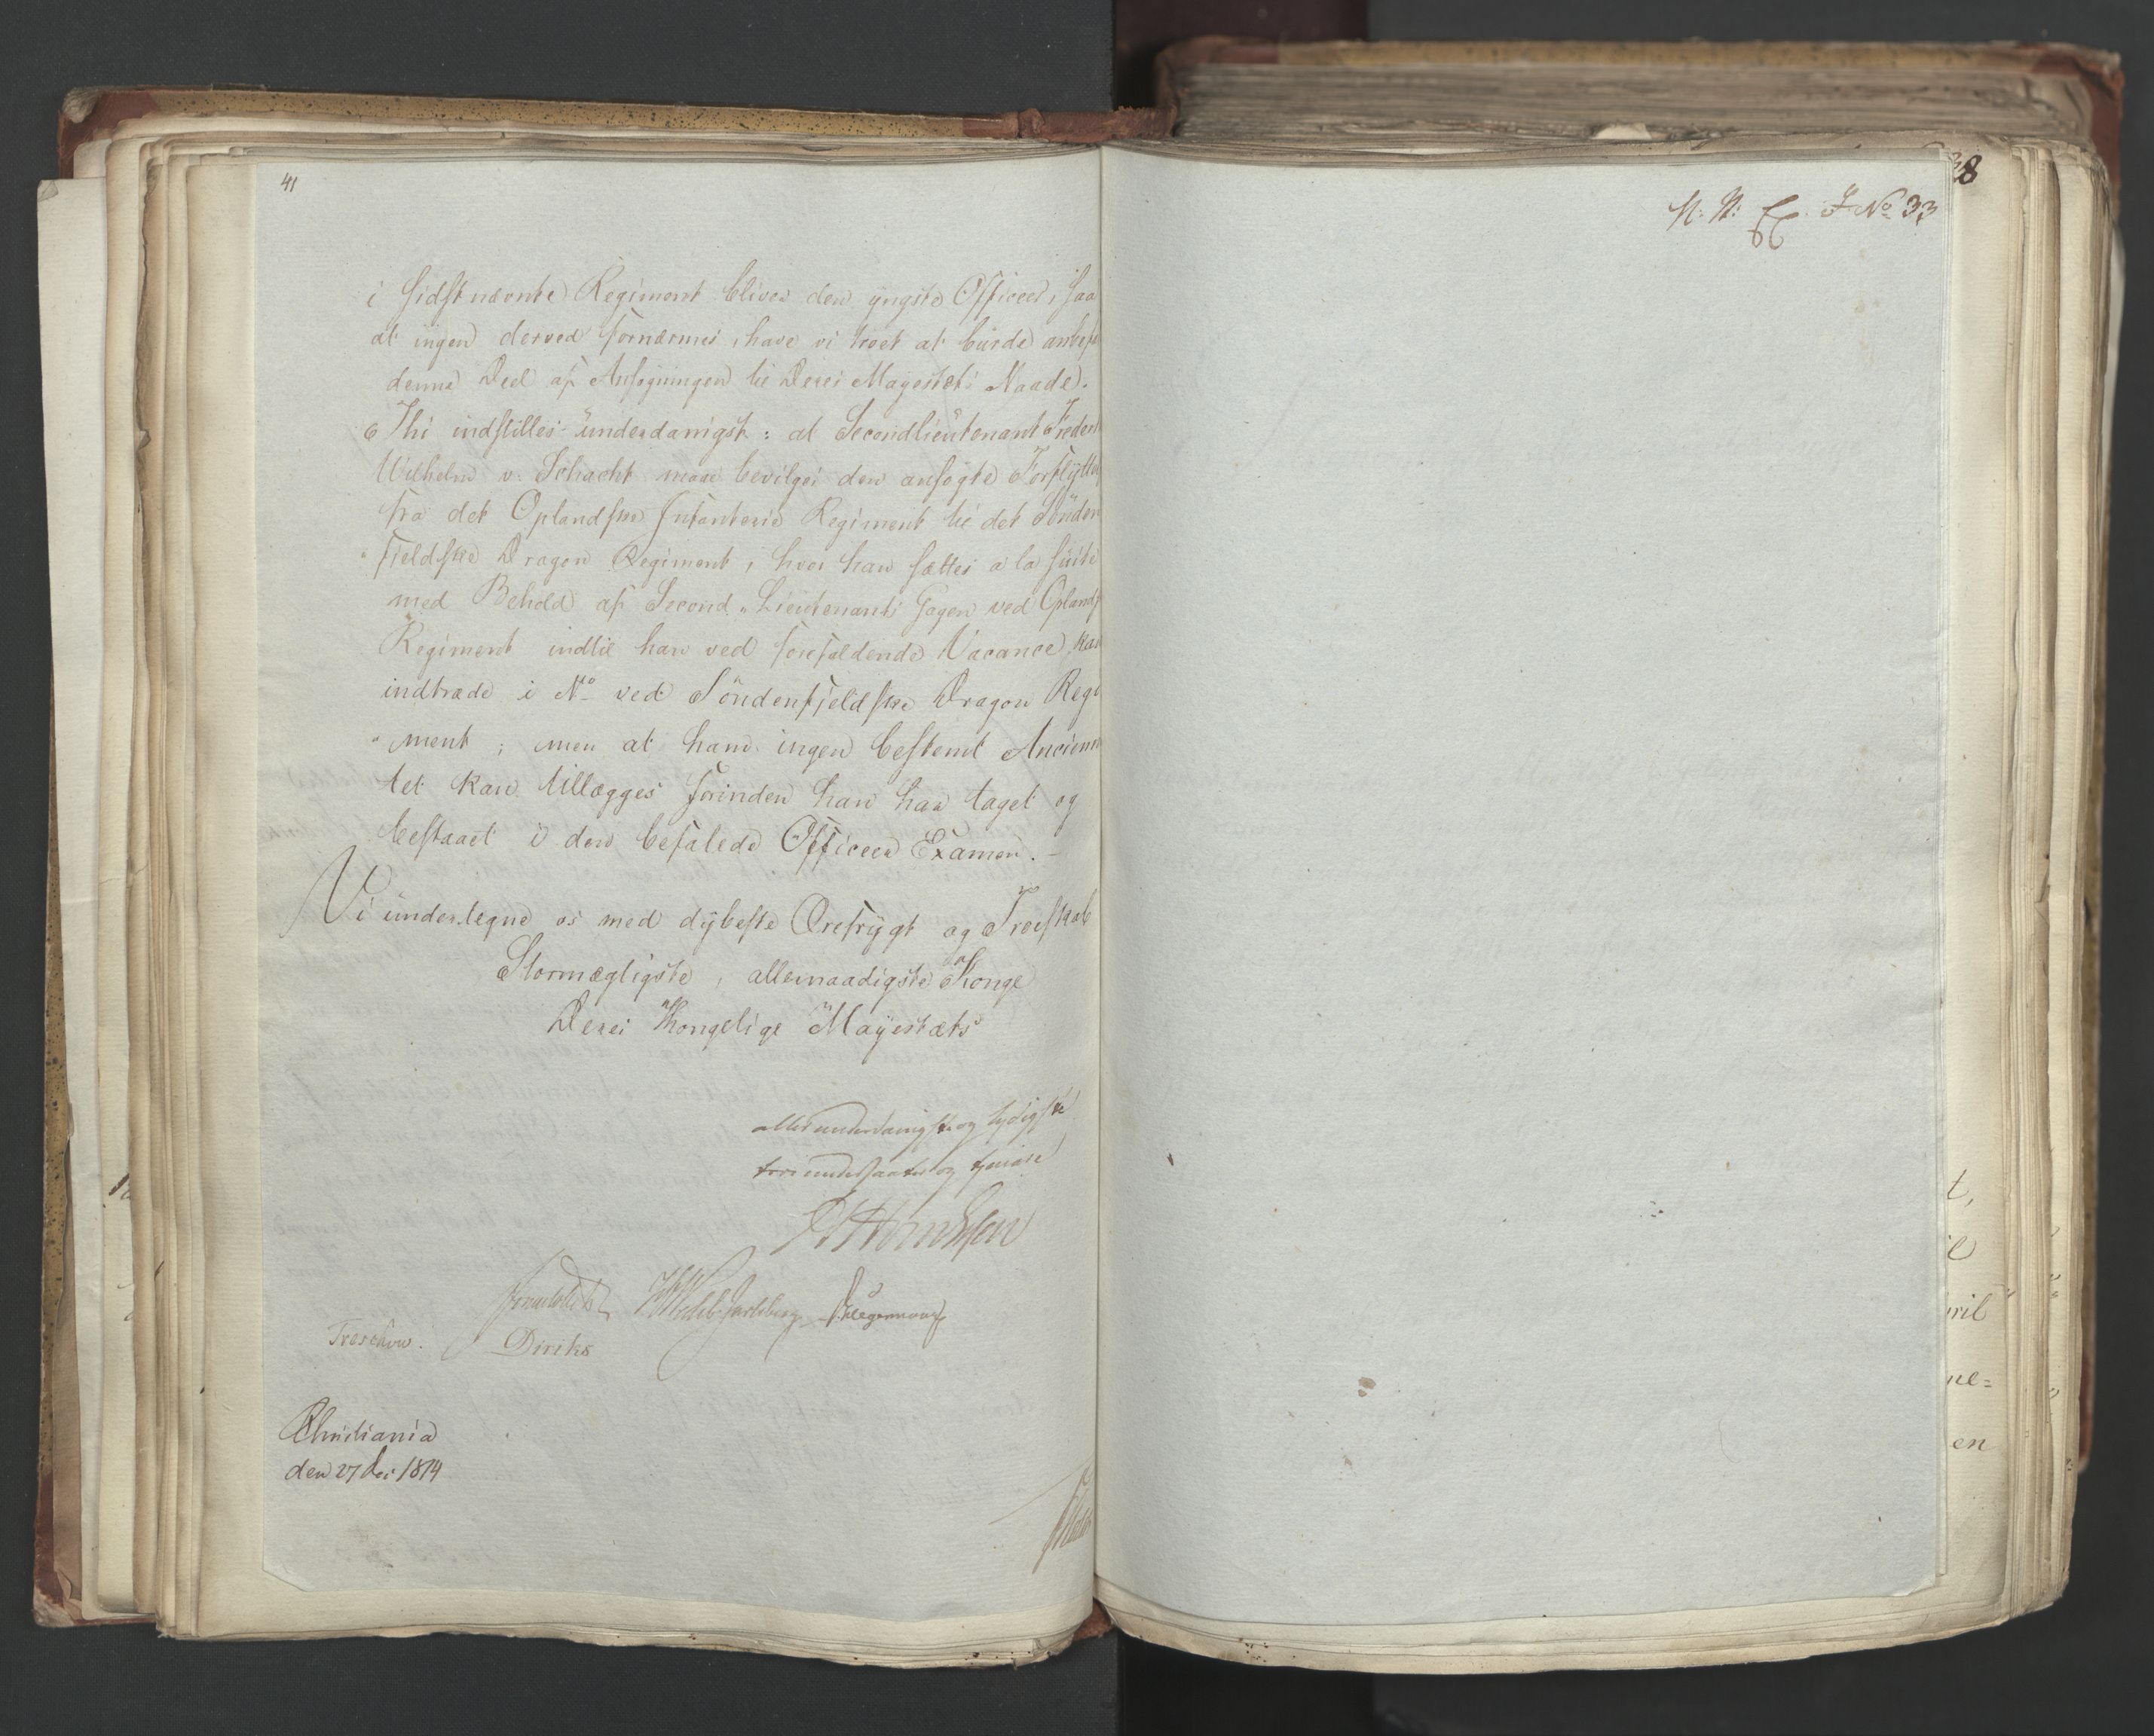 41
i sidstnævnte Regiment bliver den yngste Officeer, saa
at ingen derved fornærmes, have vi troet at burde anbefa
denne Deel af Ansøgningen til Deres Mayestæts Naade.
Thi indstilles underdanigst: at Secondlieutenant Frederi
Wilhelm v. Schacht maae bevilges den ansøgte Forflytte
fra det Oplandske Infanterie Regiment til det Sönden
„fieldske Dragon Regiment, hvor han sættes a la suite
med Behold af Second„Lieutenants Gagen ved Oplandsk
Regiment indtil han ved forefaldende Vacance kan
indtræde i No ved Söndenfjeldske Dragon Regi
„ment; men at ham ingen bestemt Ancienn
tet kan tillægges forinden han har taget og
bestaaet i den befalede Officeer Examen. –
Vi undertegne os med dÿbeste Ærefrÿgt og Troeskab
Stormægtigste, allernaadigste Konge
Deres Kongelige Mayestæts
allerunderdanigste og lydigste
troe undersaatter og tjenere
Sommerhielm
HWedel Jarlsberg
Hegermann
Treschow.
Diriks
Christiania
den 27 Dec 1814
38
N: N: J. No 33
t,
il
pril
ne=
en